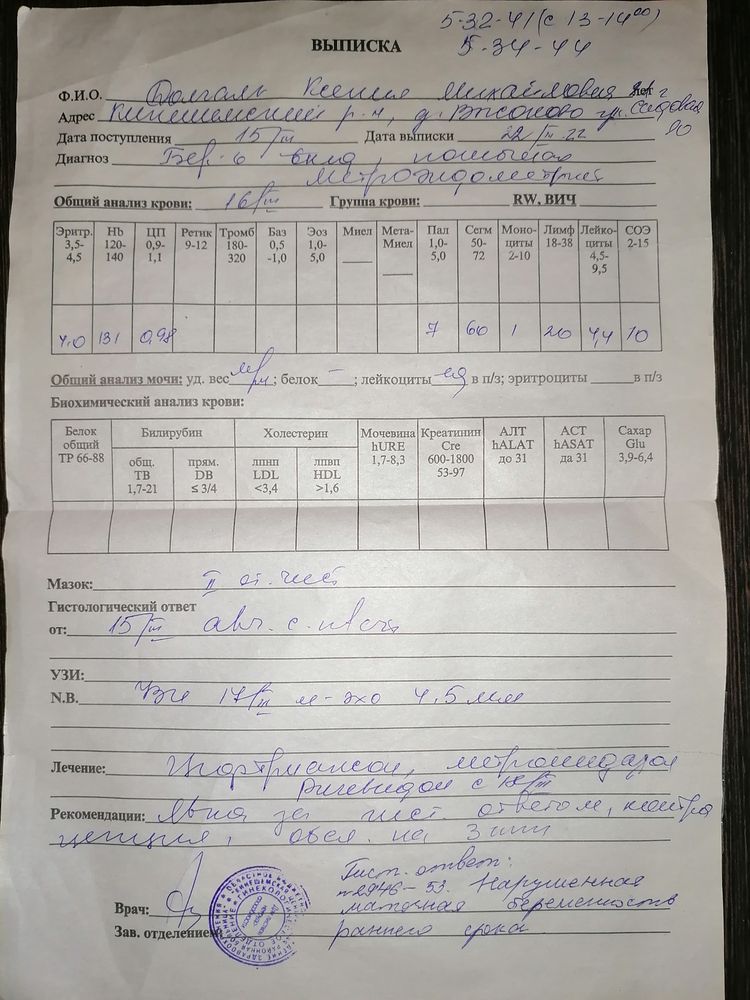 5-32-41 (с 13-14 00)
ВЫПИСКА 5-34-44
Ф.И.О. Ксения Михайловна
Адрес Кинешемский р-н, д. ул. Садовая
Дата поступления 15/III Дата выписки 22/III-22 90
Диагноз Бер-ь
Метроэндометрит
Общий анализ крови: 16/III Группа крови: RW, ВИЧ
Эритр. 3,5-4,5 Hb 120-140 ЦП 0,9-1,1 Ретик 9-12 Тромб 180-320 Баз 0,5-1,0 Эоз 1,0-5,0 Миел Мета-Миел Пал 1,0-5,0 Сегм 50-72 Моно-циты 2-10 Лимф 18-38 Лейко-циты 4,5-9,5 СОЭ 2-15
4,0 131 0,98 7 60 1 20 4,4 10
Общий анализ мочи: уд. вес м/м; белок –; лейкоциты ед в п/з; эритроциты в п/з
Биохимический анализ крови:
Белок общий TP 66-88 Билирубин Холестерин Мочевина hURE 1,7-8,3 Креатинин Cre 600-1800 53-97 АЛТ hALAT до 31 АСТ hASAT да 31 Сахар Glu 3,9-6,4
общ. TB 1,7-21 прям. DB ≤ 3/4 лпнп LDL <3,4 лпвп HDL >1,6
Мазок: II ст. чист
Гистологический ответ
от: 15/III
УЗИ:
N.B. 17/III м-эхо 4,5 мм
Лечение: Цефтриаксон, метронидазол
с
Рекомендации: Явка за гист ответом, контра
цепция,
Гист. ответ:
2946-53. Нарушенная
Врач: маточная беременность
Зав. отделением раннего срока